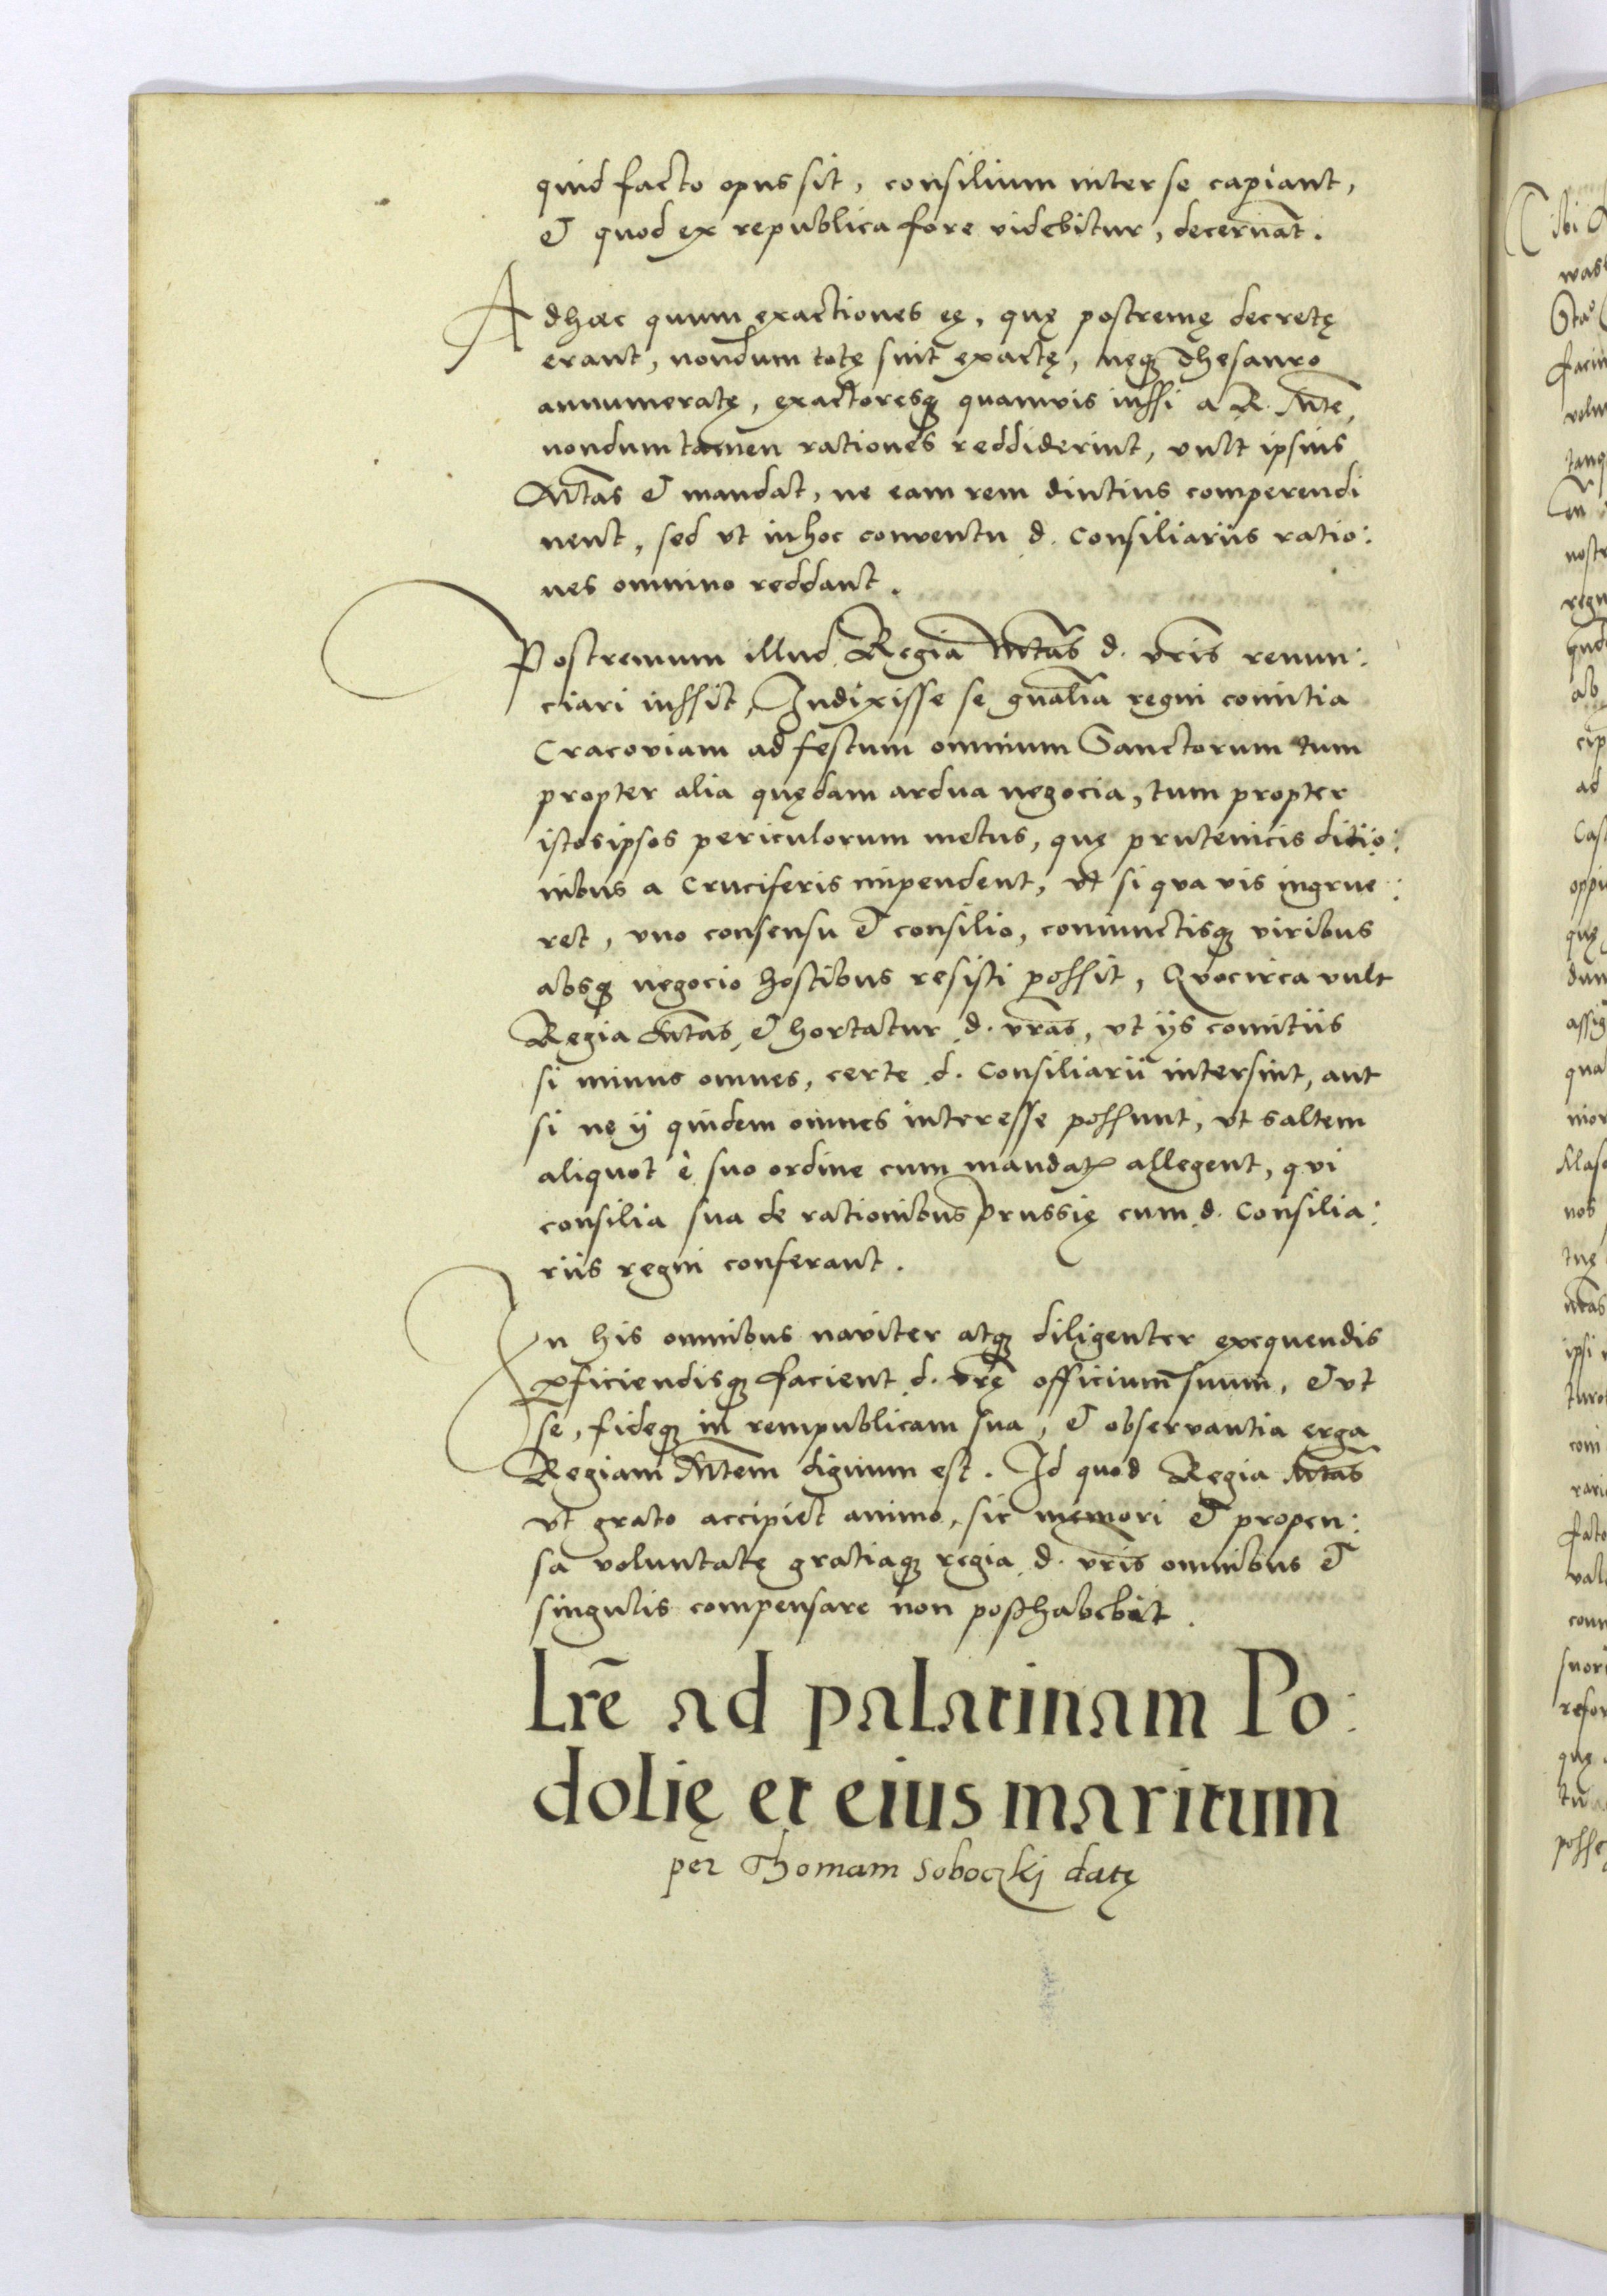 quid facto opus sit, consilium inter se capiant,
et quod ex republica fore videbitur, decernāt.
Adhæc quum exactiones eę, quę postremę decretę
erant, nondum totę sint exactę, neqꝫ thesauro
annumeratę, exactoresqꝫ quamvis iussi a R. Mte,
nondum tamen rationes reddiderint, vult ipsius
Mtas et mandat, ne eam rem diutius comperendi
nent, sed vt in hoc conventu d. Consiliariis ratio:
nes omnino reddant.
Postremum illud Regia Mtas d. vris renun:
ciari iussit, Indixisse se gnalia regni comitia
Cracoviam ad festum omnium Sanctorum tum
propter alia quędam ardua negocia, tum propter
istos ipsos periculorum metus, quę prutenicis ditio:
nibus a Cruciferis impendent, vt si qua vis ingrue:
ret, vno consensu et consilio, coniunctisqꝫ viribus
absqꝫ negocio hostibus resisti possit, Quocirca vult
Regia Mtas, et hortatur d. vras, vt ijs comitiis
si minus omnes, certe d. Consiliarii intersint, aut
si ne ij quidem omnes interesse possunt, vt saltem
aliquot è suo ordine cum mandatꝭ allegent, qui
consilia sua de rationibus Prussię cum d. Consilia:
riis regni conferant.
In his omnibus naviter atqꝫ diligenter exequendis
ꝑficiendisqꝫ facient d. vrę officium suum, et vt
se, fideqꝫ in rempublicam sua, et observantia erga
Regiam Mtem dignum est. Id quod Regia Mtas
vt grato accipiet animo, sic memori et propen:
sa voluntate gratiaqꝫ regia d. vris omnibus et
singulis compensare non posthabebit.
Lrē ad palatinam Po:
dolię et eius maritum
per Thomam Soboczkj datę